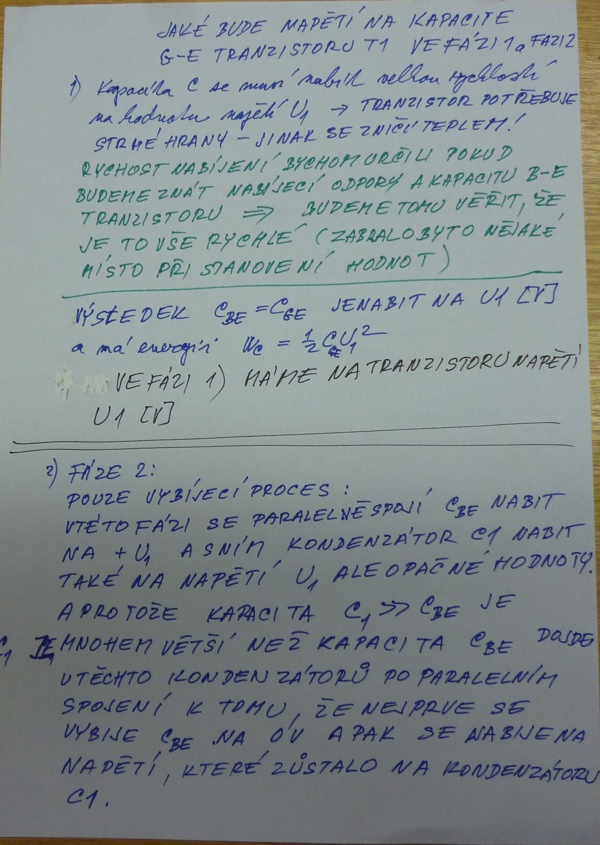 JAKÉ BUDE NAPĚTÍ NA KAPACITE
G-E TRANZISTORU T1 VE FÁZI 1 a FAZI 2
1) Kapacita C se musí nabít velkou rychlostí
na hodnotu napětí U1 → TRANZISTOR POTŘEBUJE
STRMÉ HRANY – JINAK SE ZNIČÍ TEPLEM!
RYCHOST NABÍJENÍ BYCHOM URČILI POKUD
BUDEME ZNÁT NABÍJECÍ ODPORY A KAPACITU B-E
TRANZISTORU ⇒ BUDEME TOMU VĚŘIT, ŽE
JE TO VŠE RYCHLÉ (ZABRALO BY TO NĚJAKÉ
MÍSTO PŘI STANOVENÍ HODNOT)
VÝSLEDEK CBE = CGE JE NABIT NA U1 [V]
a má energii WC = 1/2 CGE U1²
VE FÁZI 1) MÁME NA TRANZISTORU NAPĚTÍ
U1 [V]
2) FÁZE 2:
POUZE VYBÍJECÍ PROCES:
V TÉTO FÁZI SE PARALELNĚ SPOJÍ CBE NABIT
NA + U1 A S NÍM KONDENZÁTOR C1 NABIT
TAKÉ NA NAPĚTÍ U1 ALE OPAČNÉ HODNOTY.
A PROTOŽE KAPACITA C1 >> CBE JE
C1 JE MNOHEM VĚTŠÍ NEŽ KAPACITA CBE DOJDE
U TĚCHTO KONDENZÁTORŮ PO PARALELNÍM
SPOJENÍ K TOMU, ŽE NEJPRVE SE
VYBIJE CBE NA 0V A PAK SE NABIJE NA
NAPĚTÍ, KTERÉ ZŮSTALO NA KONDENZÁTORU
C1.